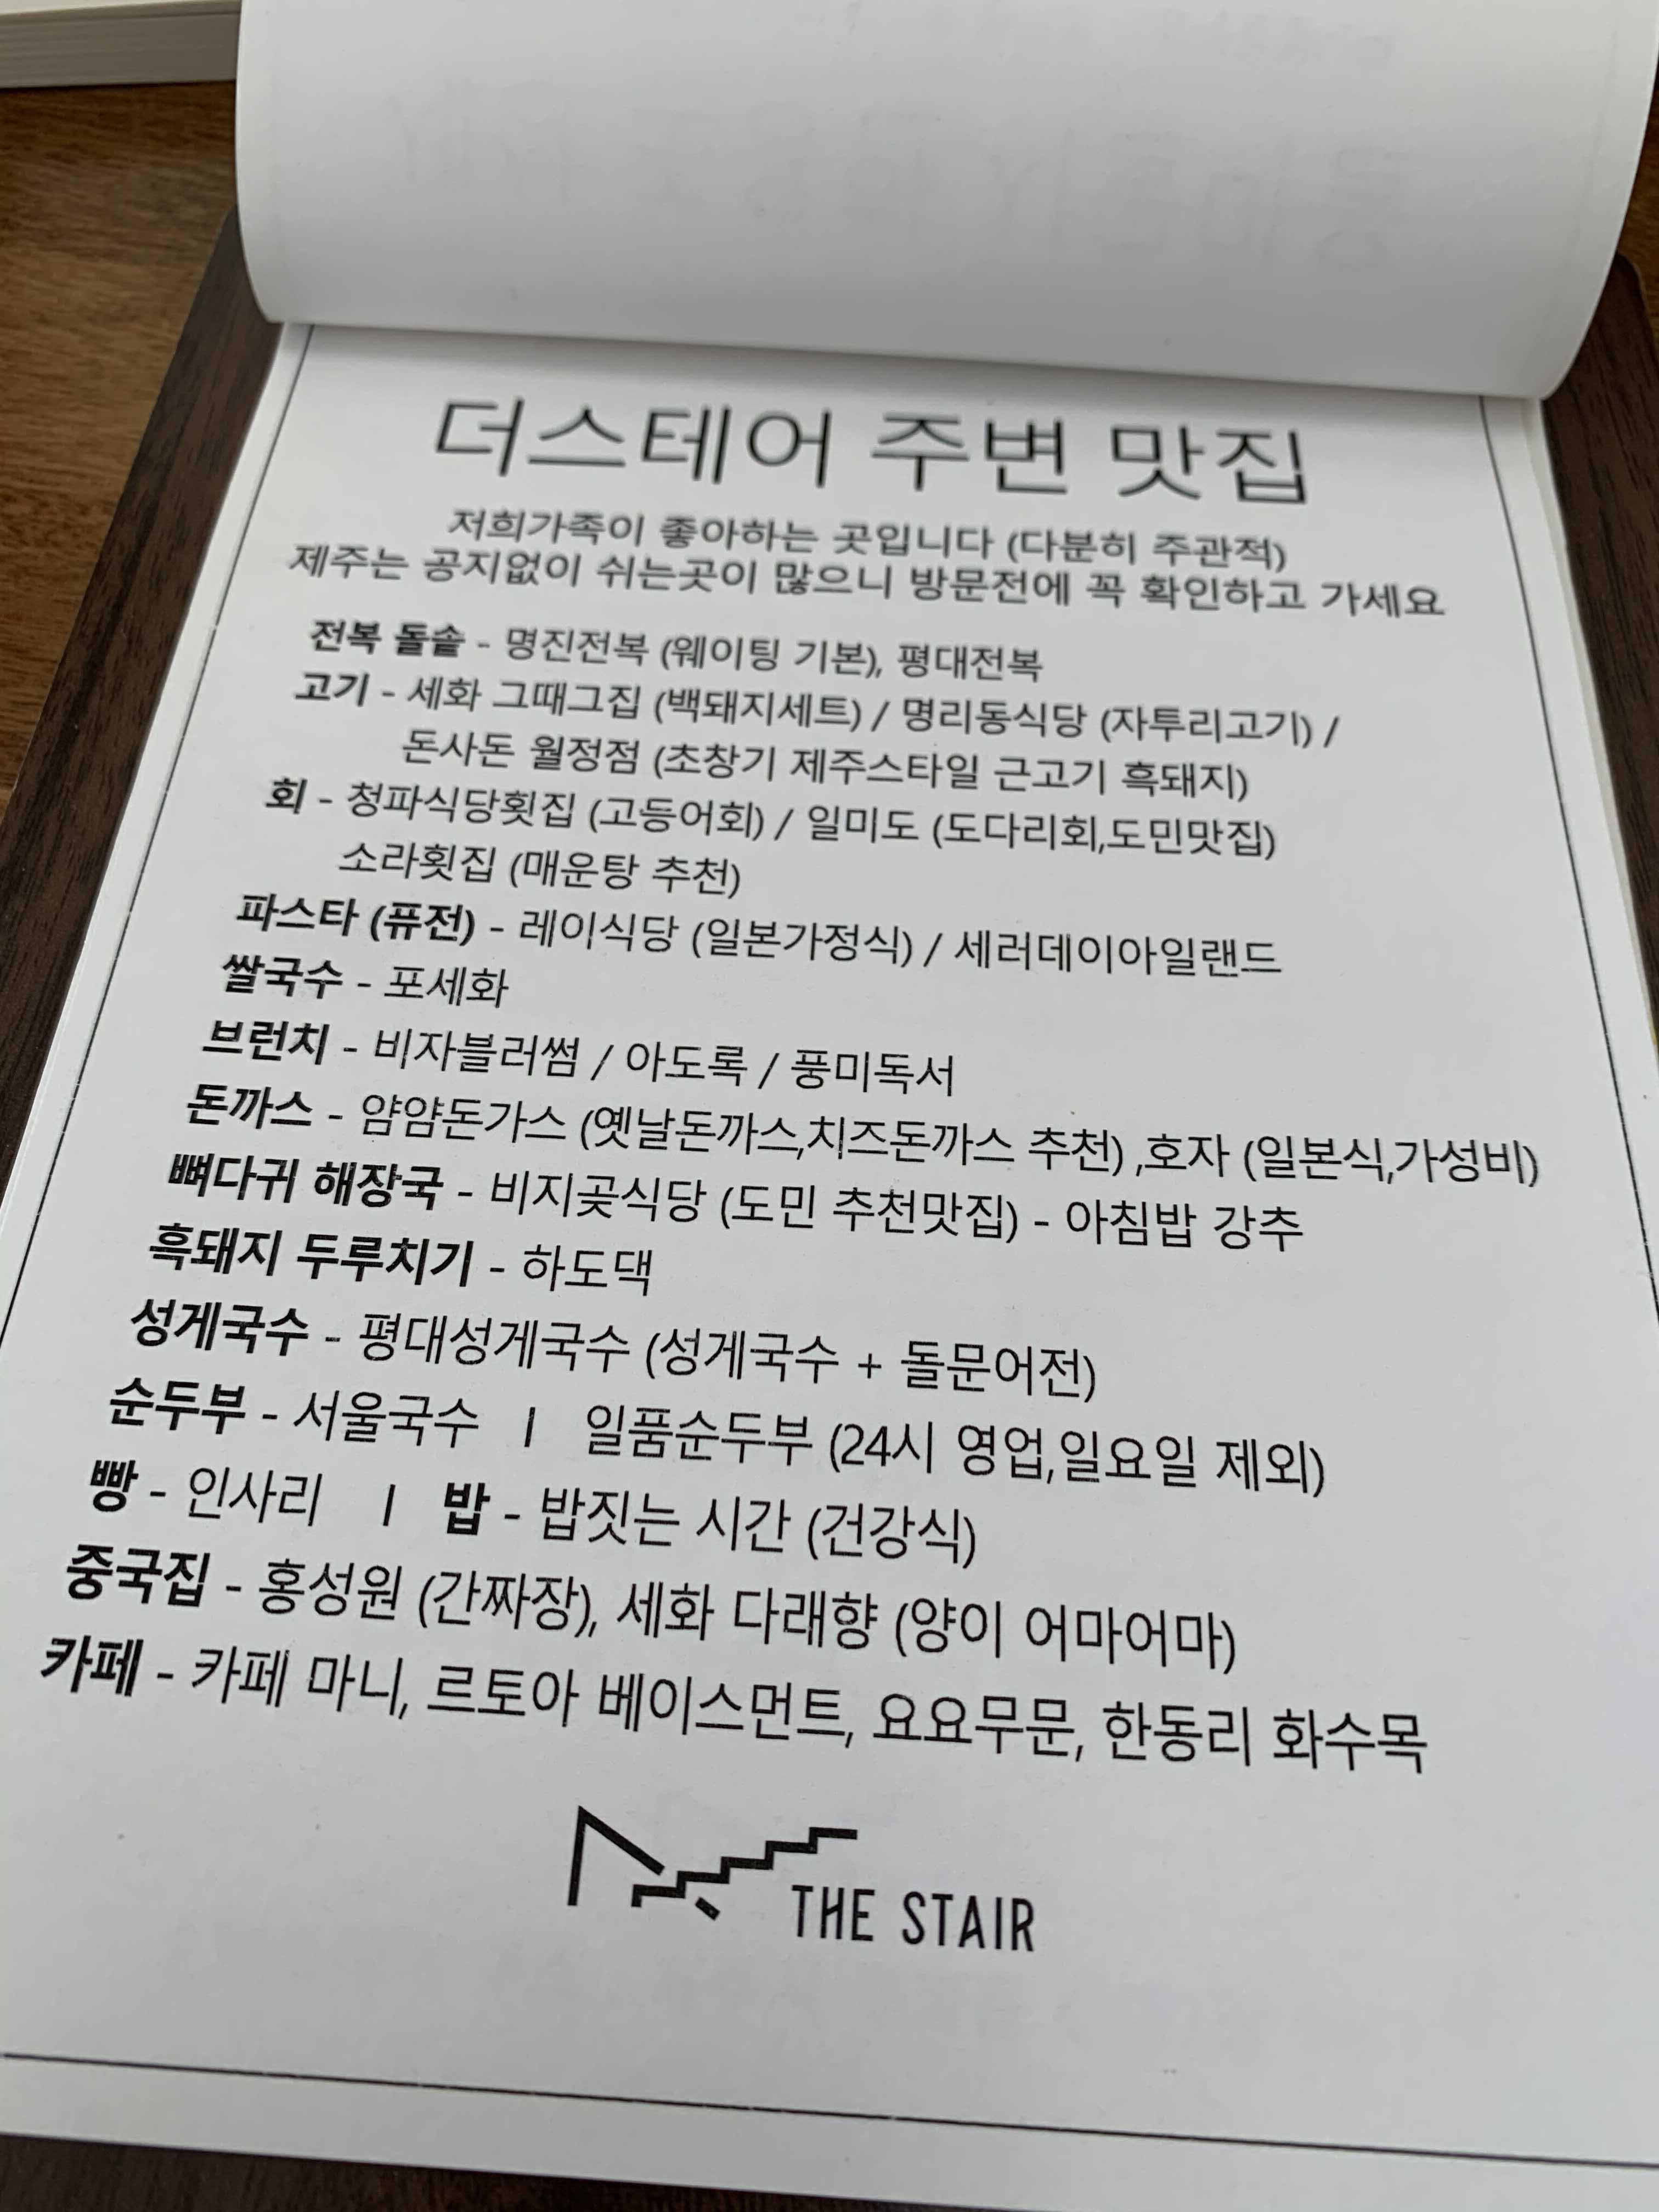 더스테어 주변 맛집
저희가족이 좋아하는 곳입니다 (다분히 주관적)
제주는 공지없이 쉬는곳이 많으니 방문전에 꼭 확인하고 가세요
전복 돌솥 - 명진전복 (웨이팅 기본), 평대전복
고기 - 세화 그때그집 (백돼지세트) / 명리동식당 (자투리고기) /
돈사돈 월정점 (초창기 제주스타일 근고기 흑돼지)
회 - 청파식당횟집 (고등어회) / 일미도 (도다리회,도민맛집)
소라횟집 (매운탕 추천)
파스타 (퓨전) - 레이식당 (일본가정식) / 세러데이아일랜드
쌀국수 - 포세화
브런치 - 비자블러썸 / 아도록 / 풍미독서
돈까스 - 얌얌돈가스 (옛날돈까스,치즈돈까스 추천) ,호자 (일본식,가성비)
뼈다귀 해장국 - 비지곶식당 (도민 추천맛집) - 아침밥 강추
흑돼지 두루치기 - 하도댁
성게국수 - 평대성게국수 (성게국수 + 돌문어전)
순두부 - 서울국수 I 일품순두부 (24시 영업,일요일 제외)
빵 - 인사리 I 밥 - 밥짓는 시간 (건강식)
중국집 - 홍성원 (간짜장), 세화 다래향 (양이 어마어마)
카페 - 카페 마니, 르토아 베이스먼트, 요요무문, 한동리 화수목
THE STAIR